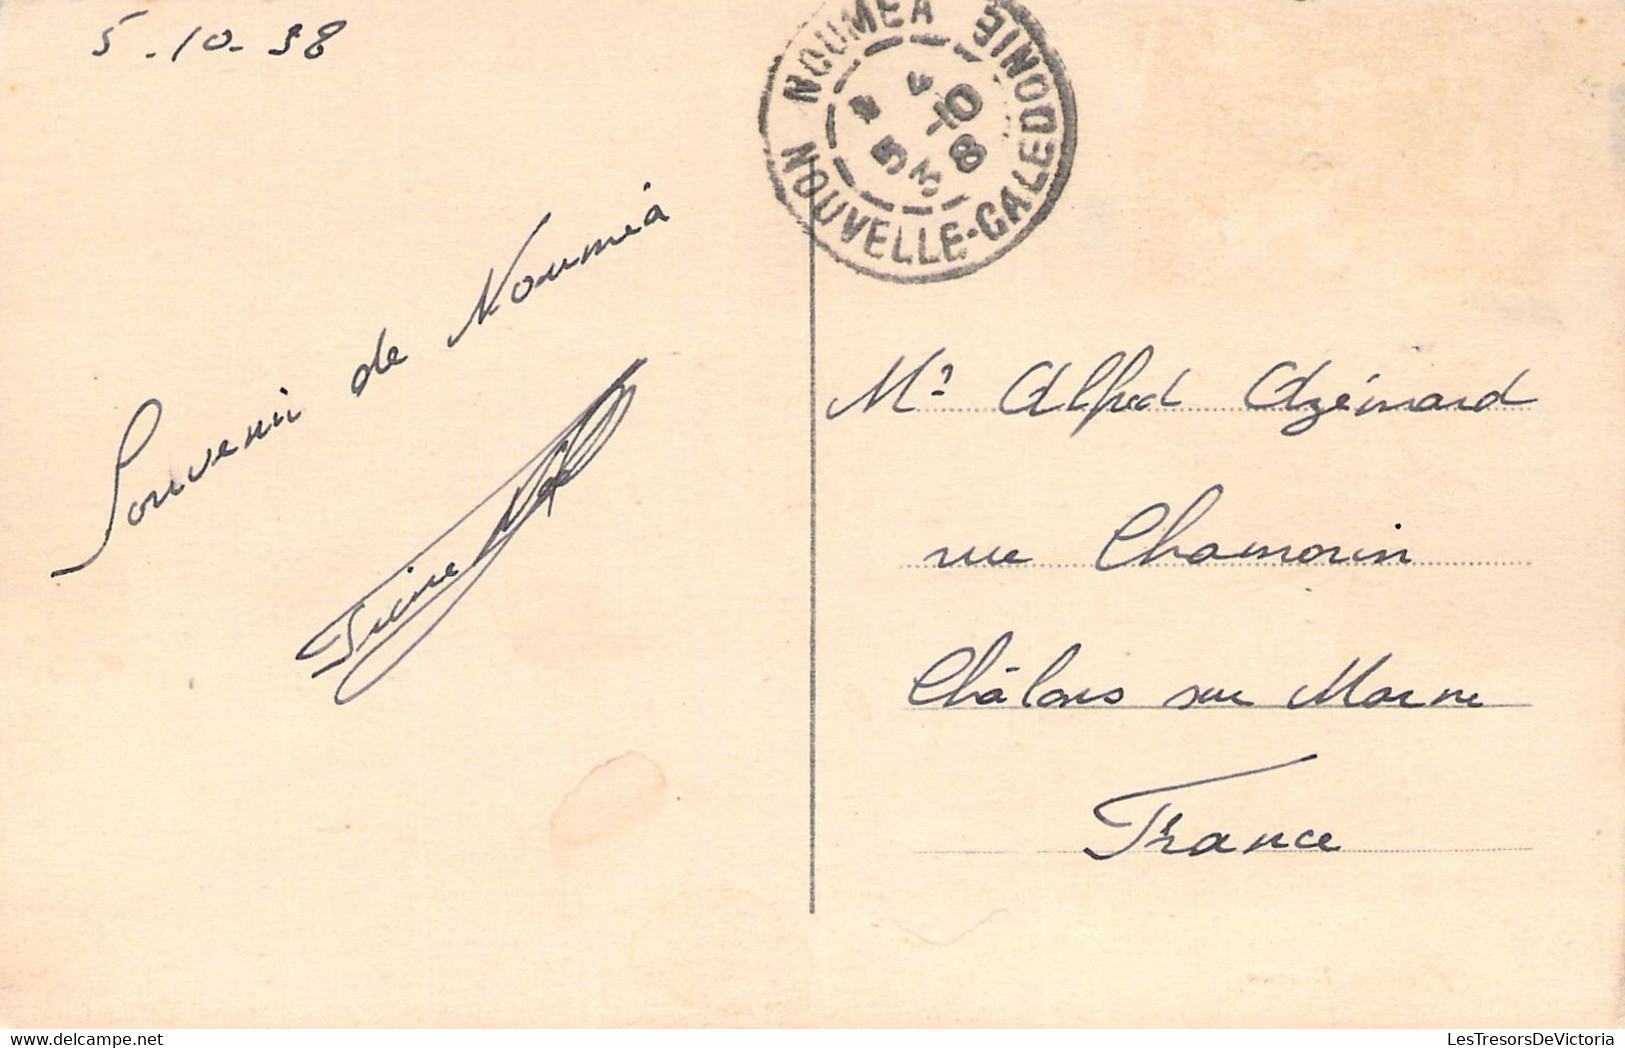 5-10-38
NOUMEA
NOUVELLE-CALEDONIE
5 -10 38
Souvenir de Nouméa
Mr Alfred Azémard
rue Chamorin
Châlons sur Marne
France
LesTresorsDeVictoria